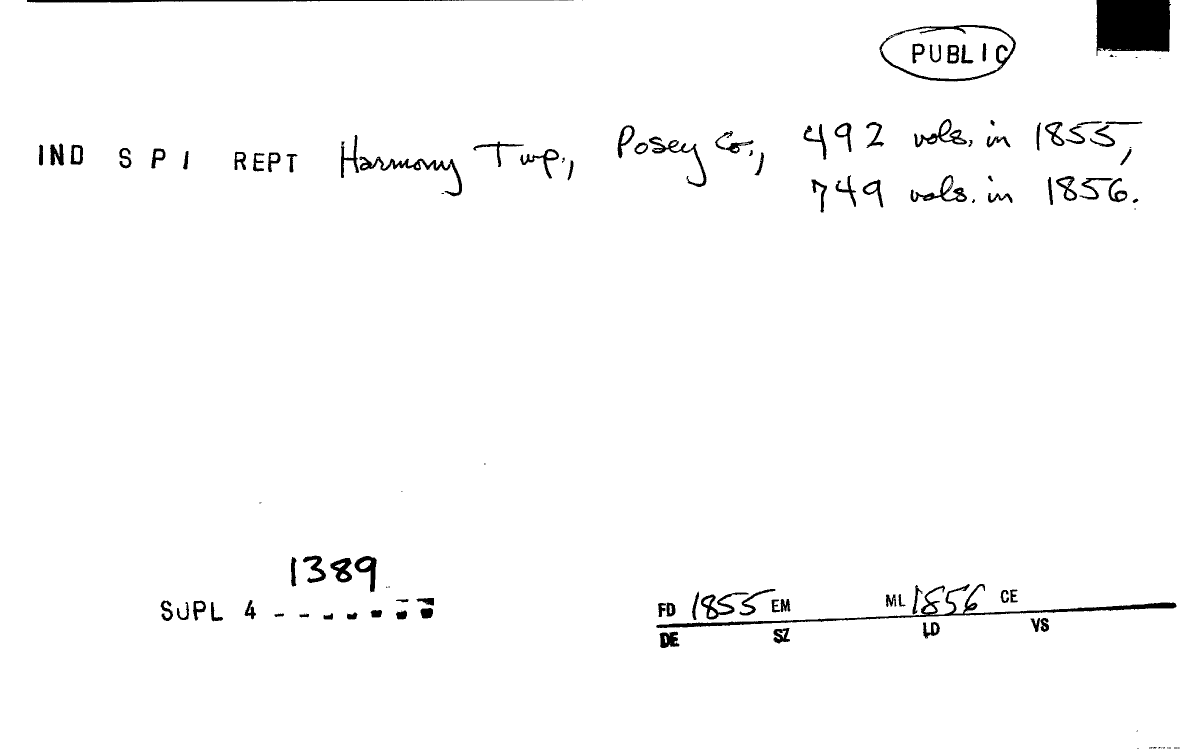 PUBLIC
IND S P I REPT Harmony Twp., Posey Co., 492 vols. in 1855,
749 vols. in 1856.
1389
SUPL 4 - - - - - - -
FD 1855 EM ML 1856 CE
DE SZ LD VS